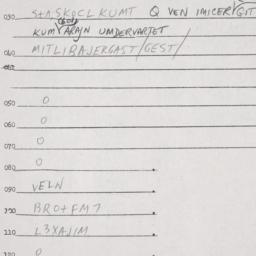 030 S+A SKOCL KUMT Q VEN IMICER GIT
KUM ARAJN UMDERVARTET
040 MITLIBAJERGAST/GEST/
050 O
060 O
070 O
080 O
090 VELN
100 BRO+FM7
110 L3XAJIM
120 O